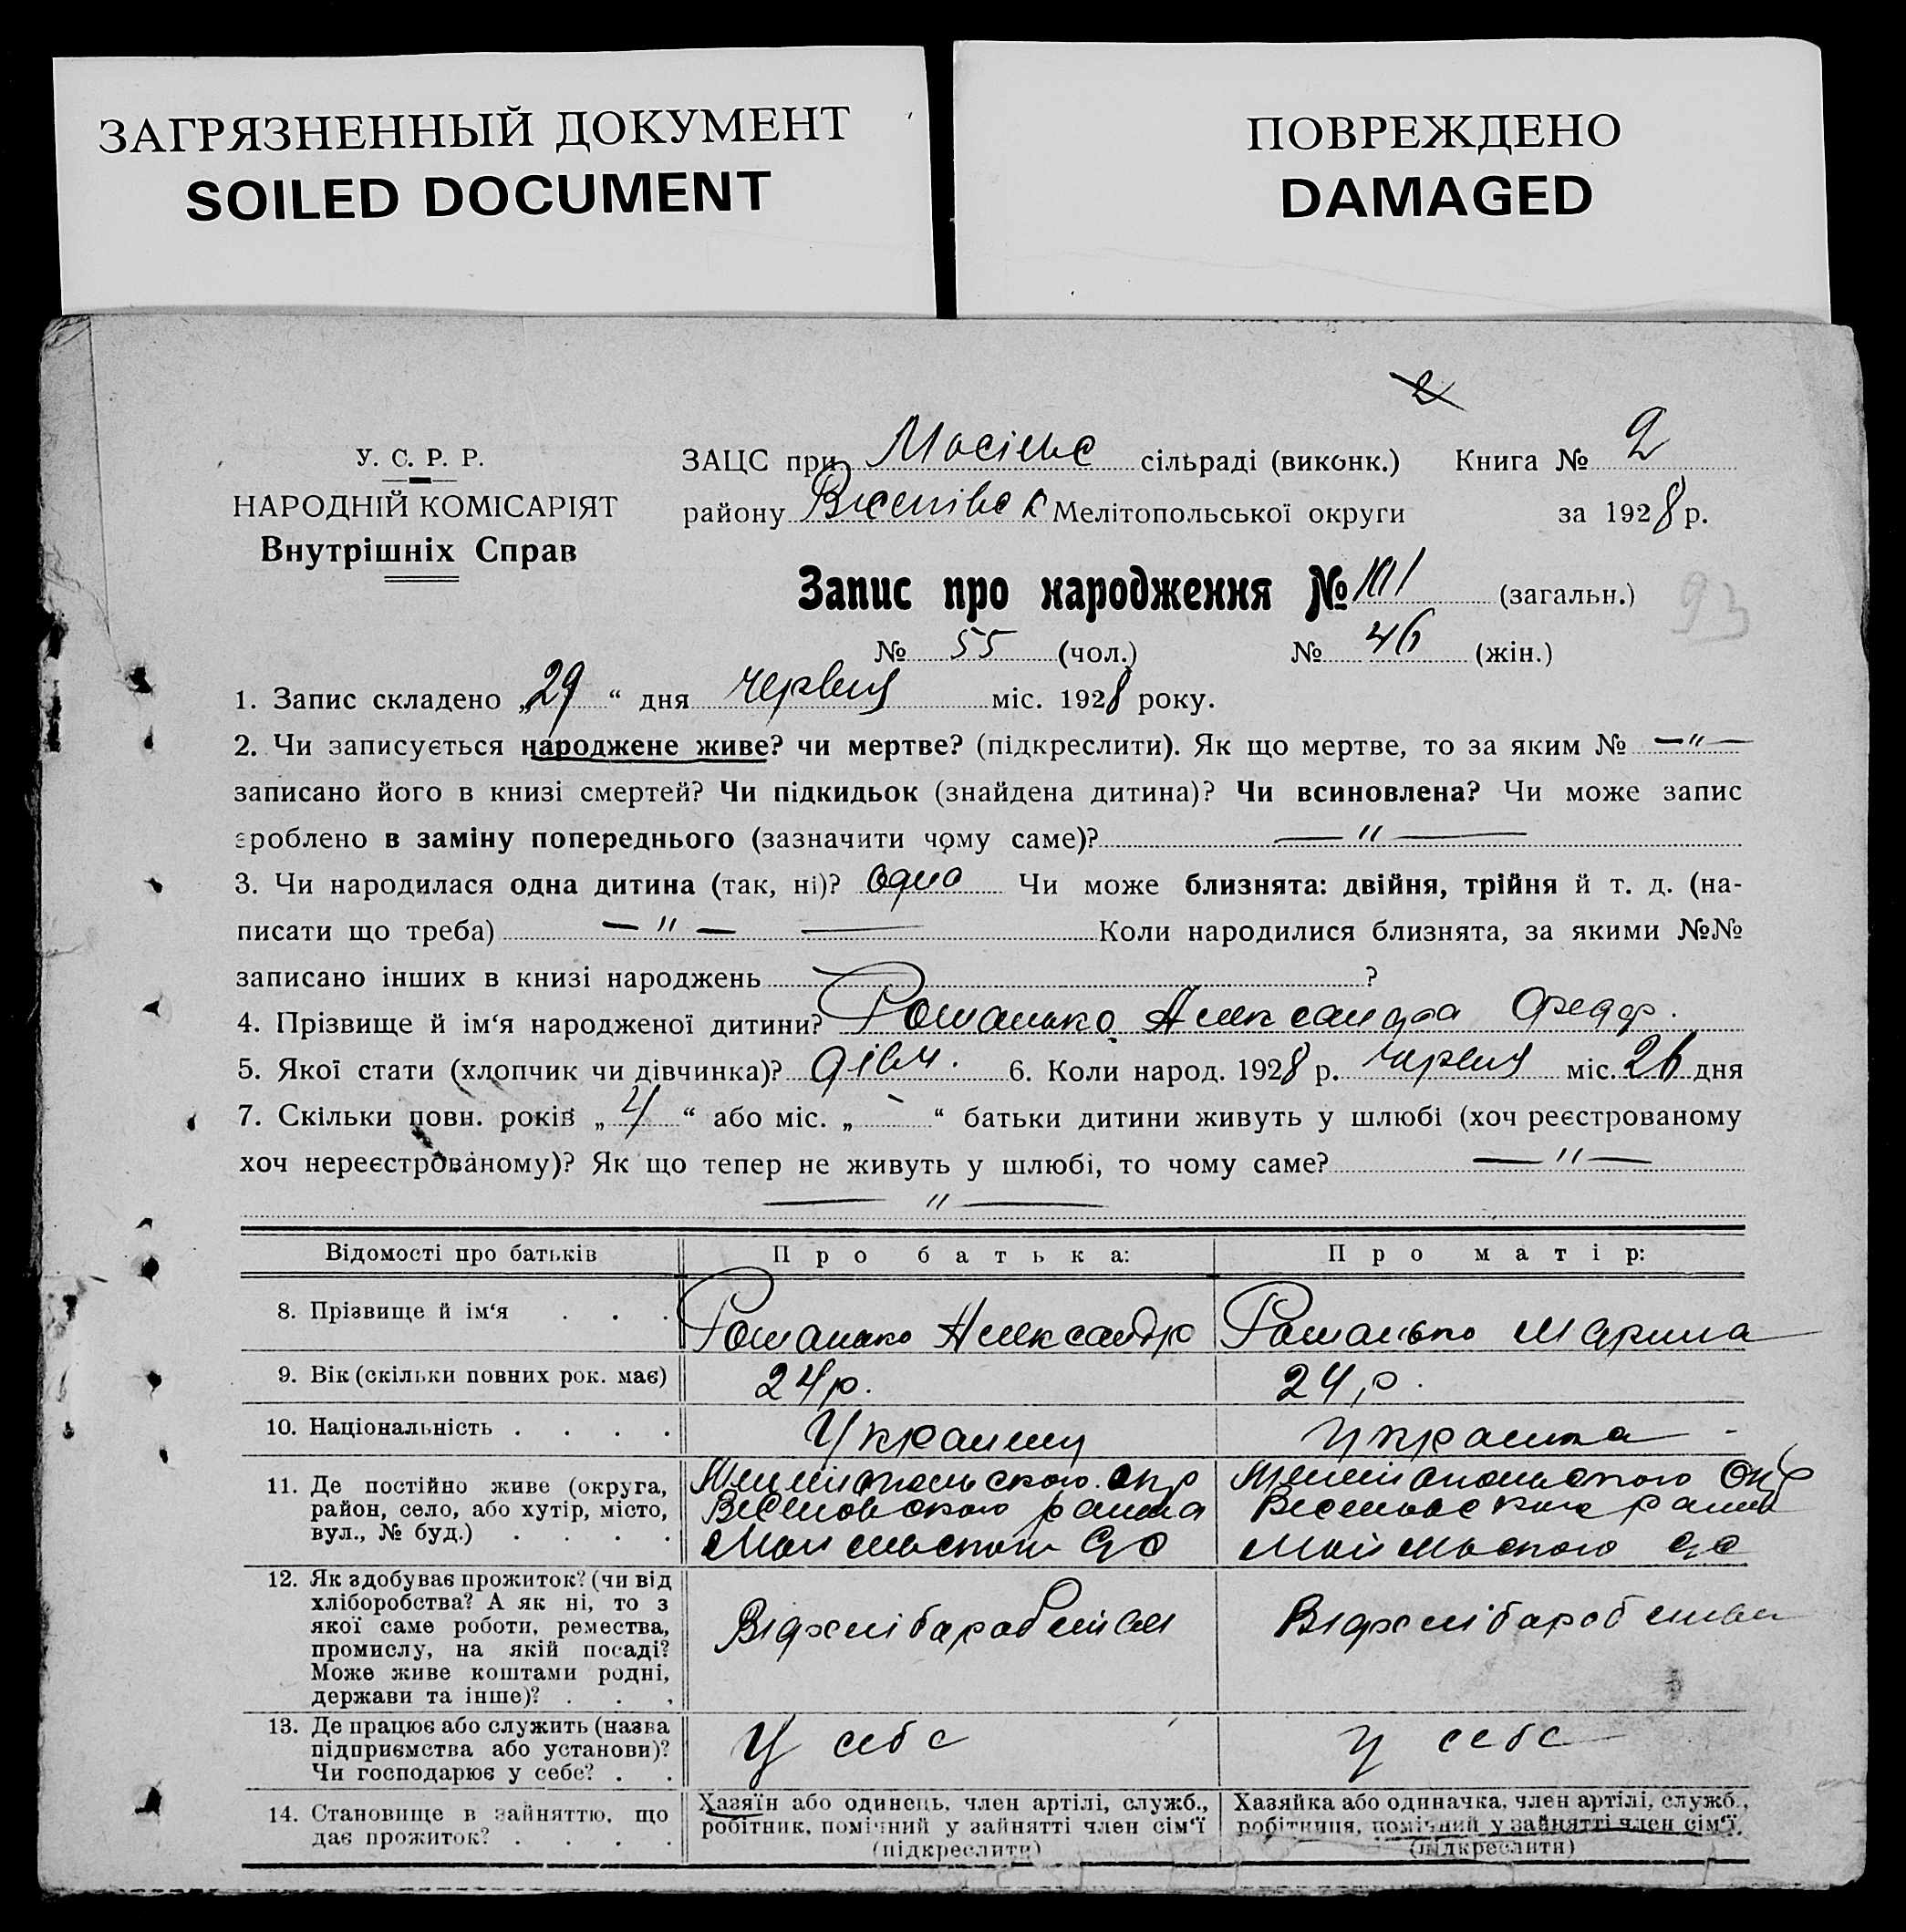 ЗАГРЯЗНЕННЫЙ ДОКУМЕНТ
SOILED DOCUMENT
ПОВРЕЖДЕНО
DAMAGED
2
У. С. Р. Р.
НАРОДНІЙ КОМІСАРІЯТ
Внутрішніх Справ
ЗАЦС при сільраді (виконк.) Книга № 2
району Мелітопольської округи за 1928 р.
Запис про народження № 101 (загальн.)
93
№ 55 (чол.) № 46 (жін.)
1. Запис складено „29“ дня червня міс. 1928 року.
2. Чи записується народжене живе? чи мертве? (підкреслити). Як що мертве, то за яким № —"—
записано його в книзі смертей? Чи підкидьок (знайдена дитина)? Чи всиновлена? Чи може запис
зроблено в заміну попереднього (зазначити чому саме)? —"—
3. Чи народилася одна дитина (так, ні)? одна Чи може близнята: двійня, трійня й т. д. (на-
писати що треба) —"— — Коли народилися близнята, за якими №№
записано інших в книзі народжень — ?
4. Прізвище й ім‘я народженої дитини? Романько Александра
5. Якої стати (хлопчик чи дівчинка)? дівч. 6. Коли народ. 1928 р. червня міс. 26 дня
7. Скільки повн. років „4“ або міс. „-“ батьки дитини живуть у шлюбі (хоч реєстрованому
хоч нереєстрованому)? Як що тепер не живуть у шлюбі, то чому саме? —"—
—"—
Відомості про батьків
Про батька:
Про матір:
8. Прізвище й ім‘я . . .
Романько Александр
Романько Марина
9. Вік (скільки повних рок. має)
24 р.
24 р.
10. Національність . . . .
Украинец
Украинка
11. Де постійно живе (округа,
район, село, або хутір, місто,
вул., № буд.) . . . .
Мелітопольского окр
Веселовского района
Мелітопольского Окр
12. Як здобуває прожиток? (чи від
хліборобства? А як ні, то з
якої саме роботи, ремества,
промислу, на якій посаді?
Може живе коштами родні,
держави та інше)? . . .
13. Де працює або служить (назва
підприємства або установи)?
Чи господарює у себе? . .
У себе
У себе
14. Становище в зайняттю, що
дає прожиток? . . . .
Хазяїн або одинець, член артілі, служб.,
робітник, помічний у зайнятті член сім‘ї
(підкреслити)
Хазяйка або одиначка, член артілі, служб.,
робітниця, помічний у зайнятті член сім‘ї
(підкреслити)